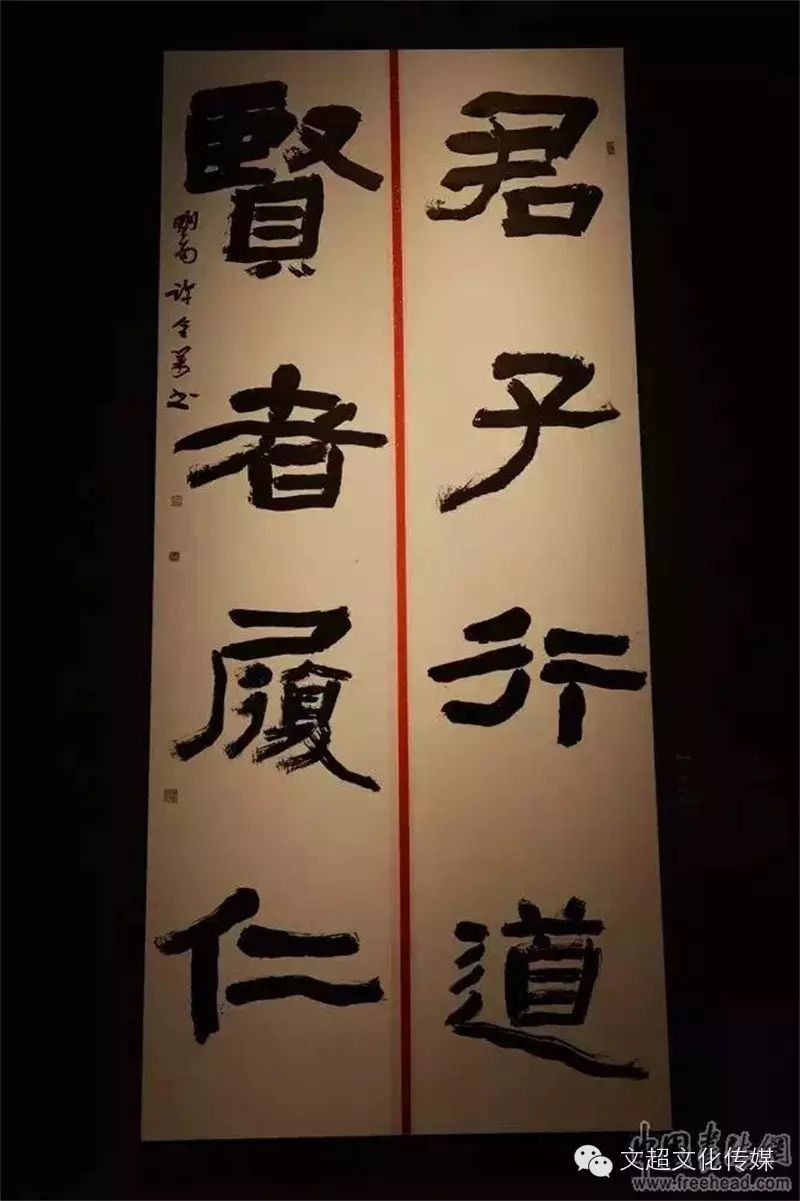 君子行道
賢者履仁
许全万书
中国书法网
文超文化传媒
www.freehead.com